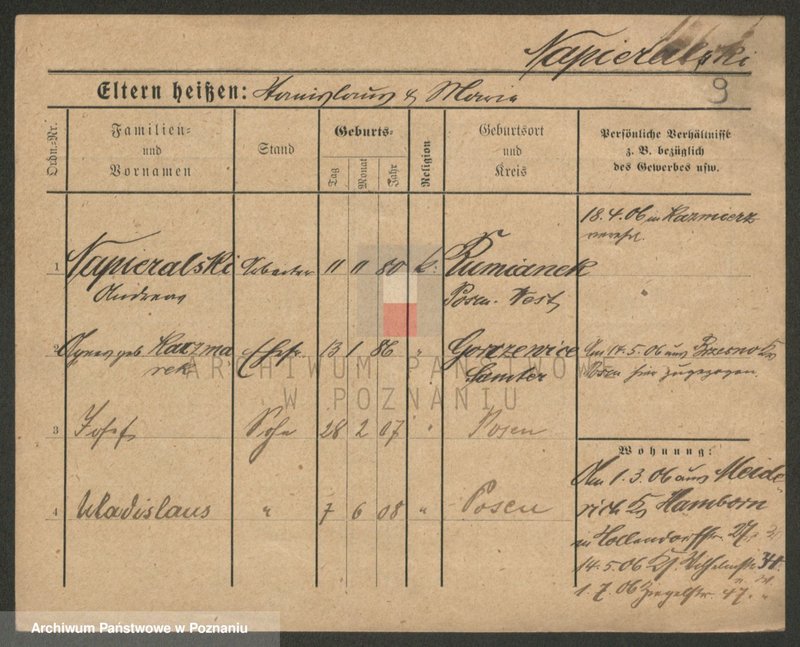 Napieralski
9
Eltern heißen: Stanislaus & Marie
Ordn.-Nr.
Familien- und Vornamen
Stand
Geburts-
Tag
Monat
Jahr
Religion
Geburtsort und Kreis
Persönliche Verhältnisse z. B. bezüglich des Gewerbes usw.
18.4.06 in Kazmierz
1 Napieralski Arbeiter 11 11 80 k. Rumianek
Andreas Posen West
2 Agnes geb Kaczma Ehefr. 13 1 86 " Gorszewice Am 14.5.06 aus
rek Samter Posen hier zugezogen.
ARCHIWUM PAŃSTWOWE
W POZNANIU
3 Josef Sohn 28 2 07 " Posen
4 Wladislaus " 7 6 08 " Posen
Wohnung:
Am 1.3.06 aus Meide
rich Hamborn
14.5.06
1.7.06 Ziegelstr. 47.
Archiwum Państwowe w Poznaniu